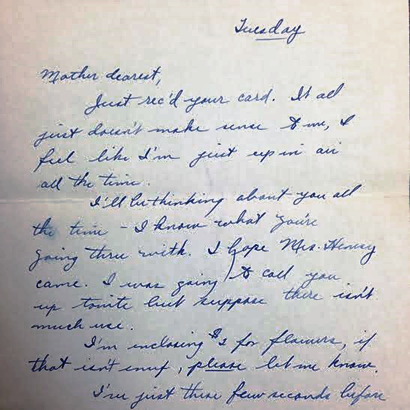 Tuesday
Mother dearest,
Just rec'd your card. It all
just doesn't make sense to me, I
feel like I'm just up in air
all the time.
I'll be thinking about you all
the time - I know what you're
going thru with. I hope Mrs. Henry
came. I was going to call you
up tonite but suppose there isn't
much use.
I'm inclosing $2 for flowers, if
that isn't enuf, please let me know.
I'm just these few seconds before